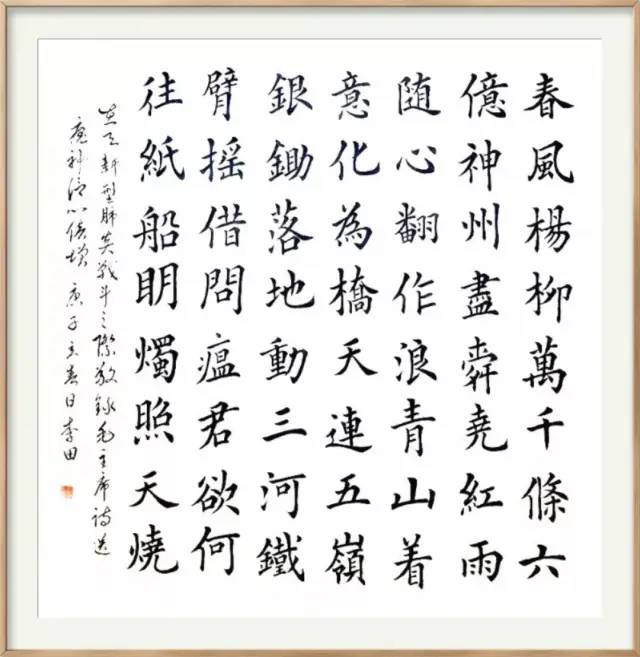 春風楊柳萬千條六
億神州盡舜堯紅雨
随心翻作浪青山着
意化為橋天連五嶺
銀鋤落地動三河鐵
臂摇借問瘟君欲何
往紙船眀燭照天燒
新型肺炎戰斗之際敬録毛主席诗送
瘟神信心倍增 庚子立春日李田